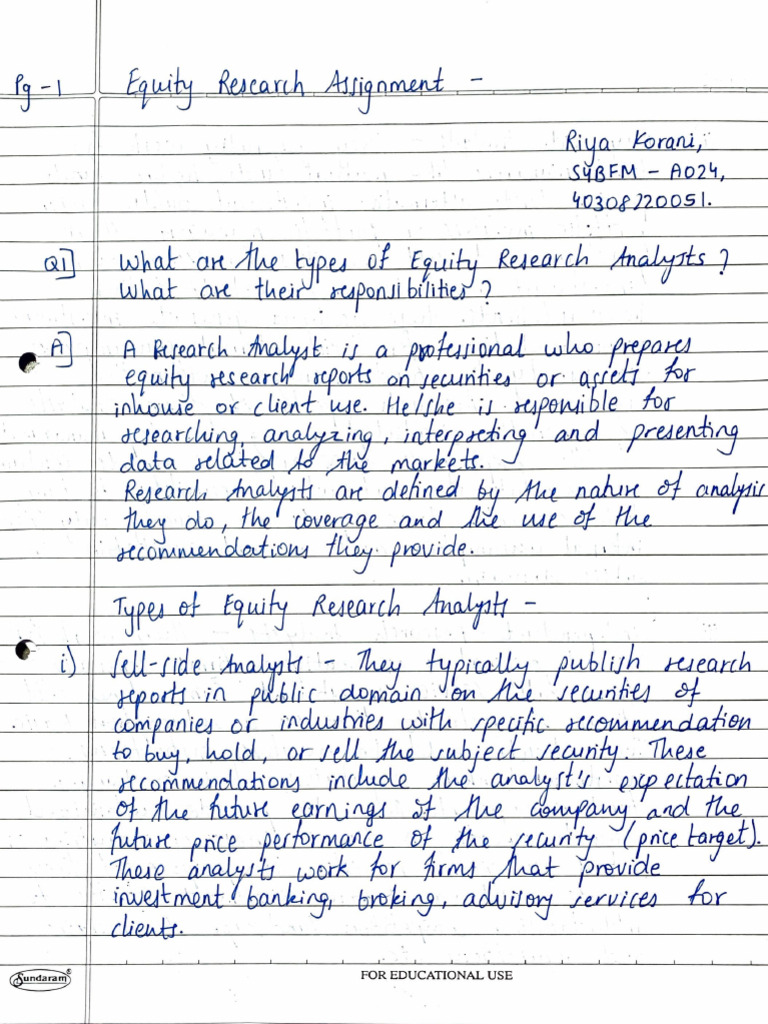 Pg - 1 Equity Research Assignment -
Riya Korani,
SYBFM - A024,
40308220051.
Q1] What are the types of Equity Research Analysts?
What are their responsibilities?
A] A Research Analyst is a professional who prepares
equity research reports on securities or assets for
inhouse or client use. He/she is responsible for
researching, analyzing, interpreting and presenting
data related to the markets.
Research Analysts are defined by the nature of analysis
they do, the coverage and the use of the
recommendations they provide.
Types of Equity Research Analysts -
i) Sell-side Analysts - They typically publish research
reports in public domain on the securities of
companies or industries with specific recommendation
to buy, hold, or sell the subject security. These
recommendations include the analyst's expectation
of the future earnings of the company and the
future price performance of the security (price target).
These analysts work for firms that provide
investment banking, broking, advisory services for
clients.
Sundaram® FOR EDUCATIONAL USE